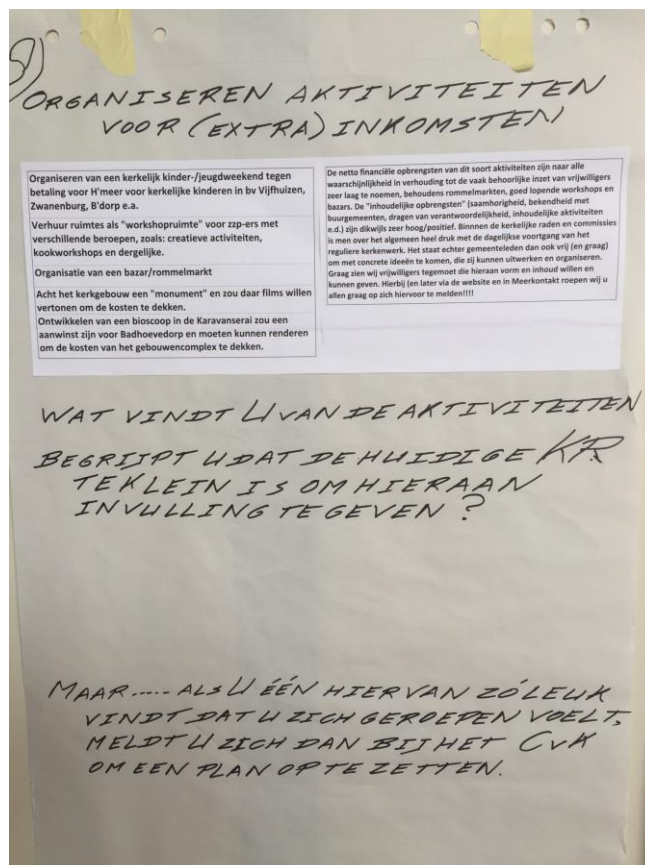 5)
ORGANISEREN AKTIVITEITEN
VOOR (EXTRA) INKOMSTEN
Organiseren van een kerkelijk kinder-/jeugdweekend tegen
betaling voor H'meer voor kerkelijke kinderen in bv Vijfhuizen,
Zwanenburg, B'dorp e.a.
Verhuur ruimtes als "workshopruimte" voor zzp-ers met
verschillende beroepen, zoals: creatieve activiteiten,
kookworkshops en dergelijke.
Organisatie van een bazar/rommelmarkt
Acht het kerkgebouw een "monument" en zou daar films willen
vertonen om de kosten te dekken.
Ontwikkelen van een bioscoop in de Karavanserai zou een
aanwinst zijn voor Badhoevedorp en moeten kunnen renderen
om de kosten van het gebouwencomplex te dekken.
De netto financiële opbrengsten van dit soort aktiviteiten zijn naar alle
waarschijnlijkheid in verhouding tot de vaak behoorlijke inzet van vrijwilligers
zeer laag te noemen, behoudens rommelmarkten, goed lopende workshops en
bazars. De "inhoudelijke opbrengsten" (saamhorigheid, bekendheid met
buurgemeenten, dragen van verantwoordelijkheid, inhoudelijke aktiviteiten
e.d.) zijn dikwijls zeer hoog/positief. Binnnen de kerkelijke raden en commissies
is men over het algemeen heel druk met de dagelijkse voortgang van het
reguliere kerkenwerk. Het staat echter gemeenteleden dan ook vrij (en graag)
om met concrete ideeën te komen, die zij kunnen uitwerken en organiseren.
Graag zien wij vrijwilligers tegemoet die hieraan vorm en inhoud willen en
kunnen geven. Hierbij (en later via de website en in Meerkontakt roepen wij u
allen graag op zich hiervoor te melden!!!!
WAT VINDT U VAN DE AKTIVITEITEN
BEGRIJPT U DAT DE HUIDIGE KR
TE KLEIN IS OM HIERAAN
INVULLING TE GEVEN ?
MAAR..... ALS U ÉÉN HIERVAN ZÓ LEUK
VINDT DAT U ZICH GEROEPEN VOELT,
MELDT U ZICH DAN BIJ HET CvK
OM EEN PLAN OP TE ZETTEN.